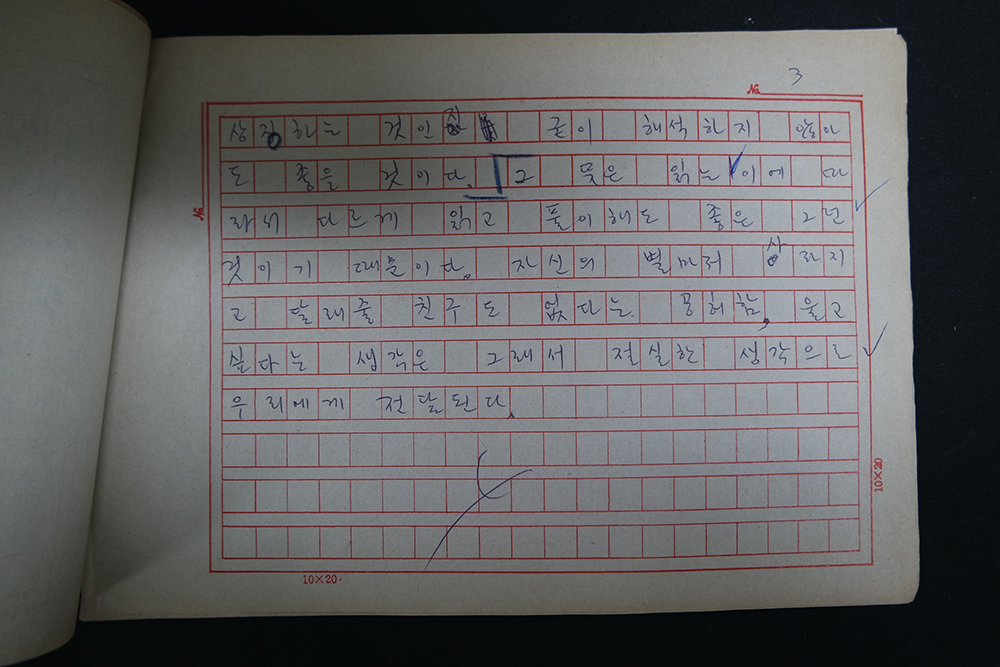 No. 3
상징하는 것인지 굳이 해석하지 않아
도 좋을 것이다. 그 몫은 읽는 이에 따
라서 다르게 읽고 풀이해도 좋은 그런
것이기 때문이다. 자신의 별마저 사라지
고 달래줄 친구도 없다는 공허함, 울고
싶다는 생각은 그래서 절실한 생각으로
우리에게 전달된다.
No.
10×20
10×20